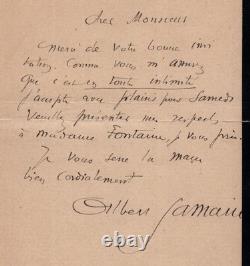 Cher Monsieur
Merci de votre bonne invi
tation. Comme vous m'annoncez
que c'est en toute intimité
j'accepte avec plaisir pour Samedi
Veuillez présenter mes respects
à Madame Fontaine, je vous prie
Je vous serre la main
bien cordialement
Albert Samain